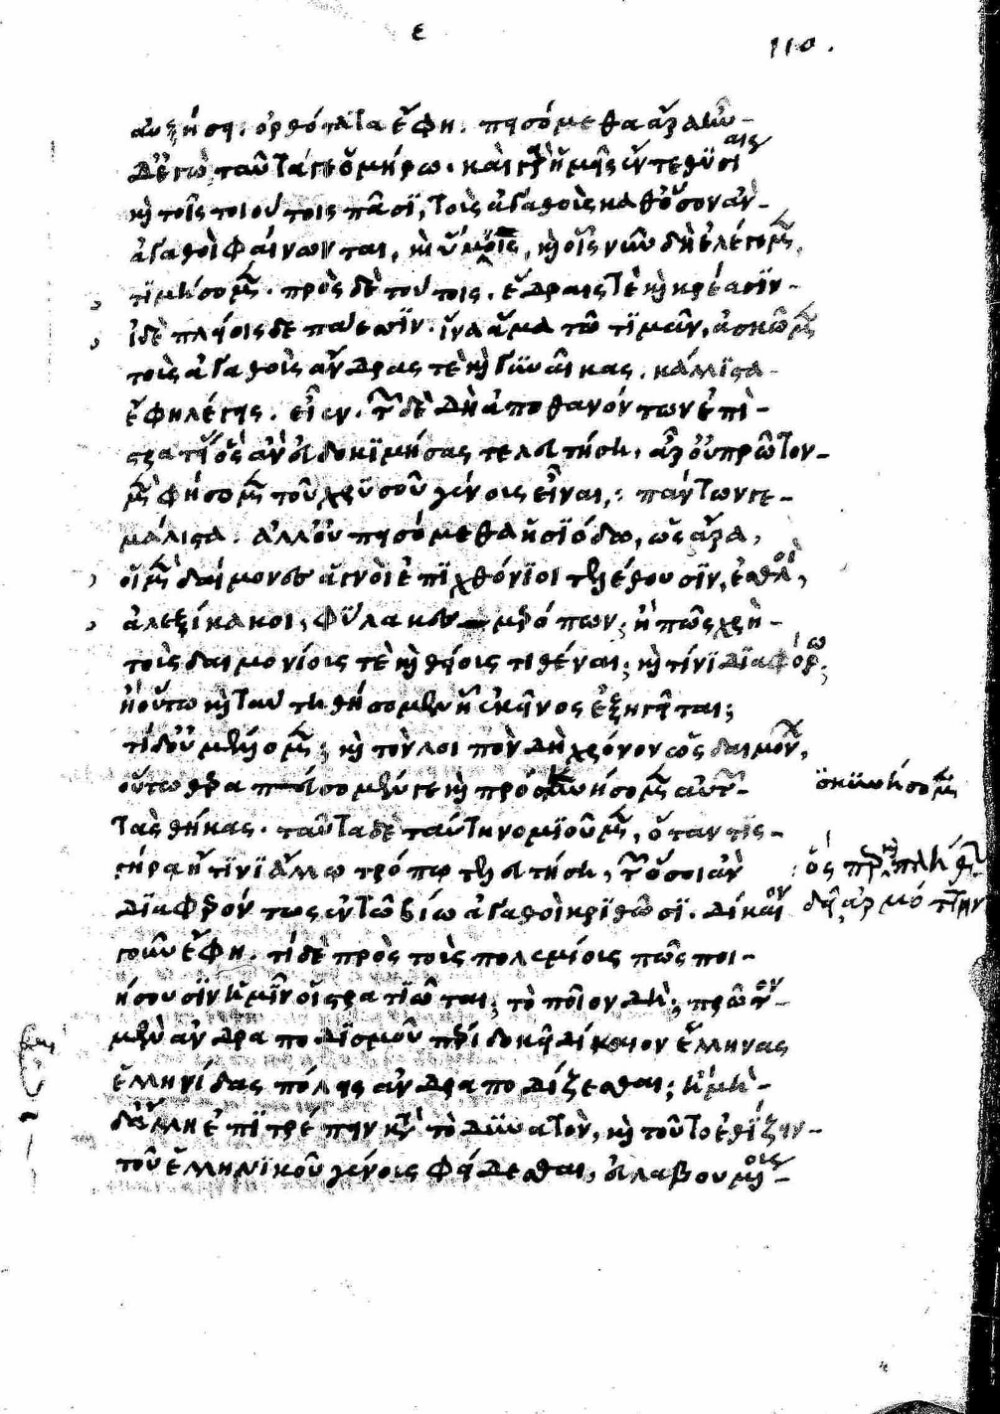 ε
110.
αυξήση. ὀρθότατα ἔφη. πησόμεθα ἄρα ἦν
δ' ἐγὼ ταῦτά γε ὁμήρω. καὶ γὰρ ἡμεῖς ἔν τε θυσίαις
καὶ τοῖς τοιούτοις πᾶσι, τοὺς ἀγαθοὺς καθ' ὅσον ἂν
ἀγαθοὶ φαίνωνται, καὶ ὕμνοις, καὶ οἷς νῦν δὴ ἐλέγομεν,
τιμήσομεν. πρὸς δὲ τούτοις. ἕδραις τὲ καὶ κρέασιν
ἰδὲ πλείοις δεπάεσσιν. ἵνα ἅμα τῶ τιμᾶν, ἀσκῶμεν
τοὺς ἀγαθοὺς ἄνδρας τὲ καὶ γυναῖκας. κάλλιστα
ἔφη λέγεις. εἶεν. τῶν δὲ δὴ ἀποθανόντων ἐπὶ
στρατείας ὃς ἂν εὐδοκιμήσας τελευτήση, ἆρ' οὐ πρῶτον
μὲν φήσομεν τοῦ χρυσοῦ γένους εἶναι; πάντων γε
μάλιστα. ἀλλ' οὐ πησόμεθα ἡσιόδω, ὡς ἄρα,
οἱ μὲν δαίμονες ἁγνοὶ ἐπιχθόνιοι τελέθουσιν, ἐσθλοὶ,
ἀλεξίκακοι, φύλακες μερόπων; ἢ πῶς χρὴ
τοὺς δαιμονίους τὲ καὶ θείους τιθέναι; καὶ τίνι διαφόρω;
ἢ οὕτω καὶ ταύτη θήσομεν ᾗ ἐκεῖνος ἐξηγῆται;
τί δ' οὐ μέλλομεν; καὶ τὸν λοιπὸν δὴ χρόνον ὡς δαιμόνων,
οὕτω θερα πεύσομέν γε καὶ προσκυνήσομεν αὐτῶν
τὰς θήκας. ταῦτα δὲ ταῦτα νομιοῦμεν, ὅταν τις
γήρα ἤ τινι ἄλλω τρόπω τελευτήση, τῶν ὅσοι ἂν
διαφερόντως ἐν τῶ βίω ἀγαθοὶ κριθῶσι. δίκαιον
γοῦν ἔφη. τί δὲ πρὸς τοὺς πολεμίους πῶς ποι-
ήσουσιν ἡμῖν οἱ στρατιῶται; τὸ ποῖον δή; πρῶτον
μὲν ἀνδραποδισμοῦ πέρι δοκεῖ δίκαιον ἕλληνας
ἑλληνίδας πόλεις ἀνδραποδίζεσθαι; ἢ μὴ
δ' ἄλλη ἐπιτρέπειν κατὰ τὸ δυνατὸν, καὶ τοῦτο ἐθίζειν
τοῦ ἑλληνικοῦ γένους φείδεσθαι, εὐλαβουμένοις